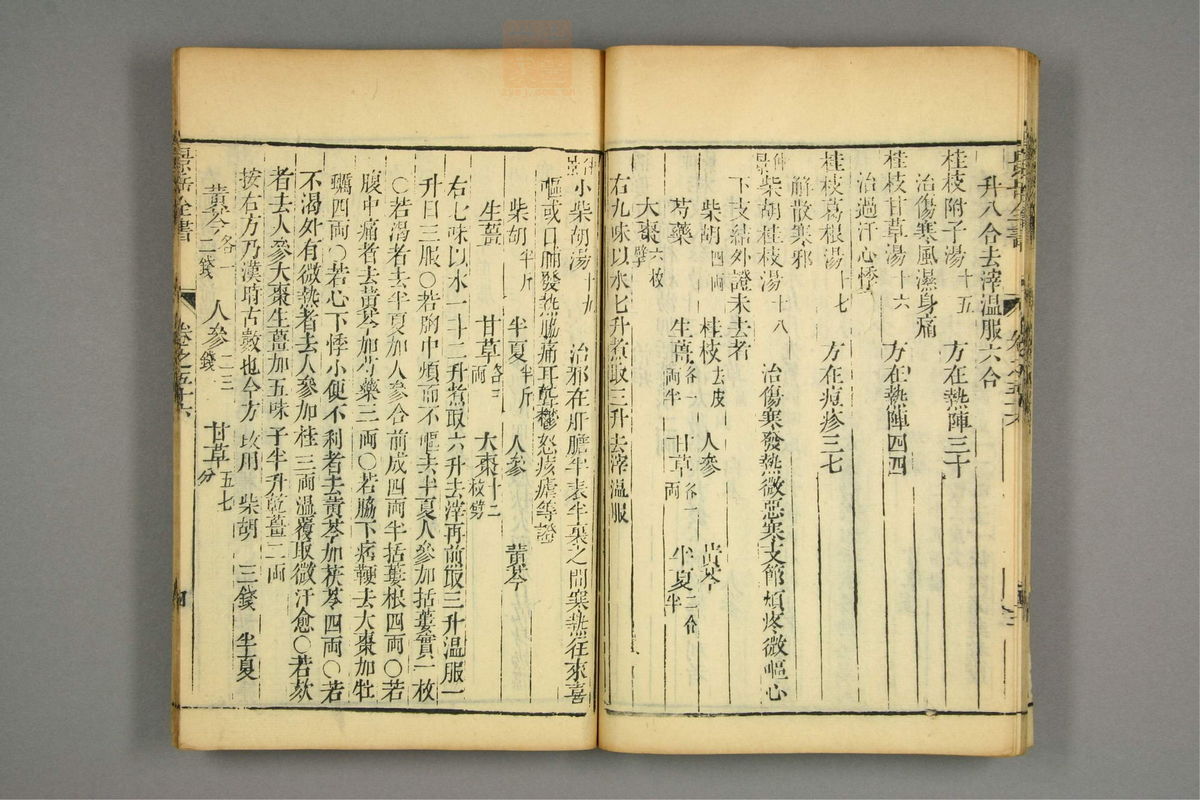 升八合去滓溫服六合
桂枝附子湯十五 方在熱陣三十
治傷寒風濕身痛
桂枝甘草湯十六 方在熱陣四四
治過汗心悸
桂枝葛根湯十七 方在痘疹三七
解散寒邪
仲景柴胡桂枝湯十八 治傷寒發熱微惡寒支節煩疼微嘔心
下支結外證未去者
柴胡四両 桂枝去皮 人參 黃芩
芍藥 生薑各一両半 甘草各一両 半夏二合半
大棗六枚擘
右九味以水七升煮取三升去滓溫服
仲景小柴胡湯十九 治邪在肝膽半表半裏之間寒熱往來喜
嘔或口酸發熱脇痛耳聾鬱怒痎瘧等證
柴胡半斤 半夏半斤 人參 黃芩
生薑 甘草各三両 大棗十二枚劈
右七味以水一十二升煮取六升去滓再煎取三升溫服一
升日三服○若胸中煩而不嘔去半夏人參加括蔞實一枚
○若渴者去半夏加人參合前成四両半括蔞根四両○若
腹中痛者去黃芩加芍藥三両○若脇下痞鞕去大棗加牡
蠣四両○若心下悸小便不利者去黃芩加茯苓四両○若
不渴外有微熱者去人參加桂三両溫覆取微汗愈○若欬
者去人參大棗生薑加五味子半升乾薑二両
按右方乃漢時古數也今方改用柴胡三錢 半夏
黃芩各二錢 人參二三錢 甘草五七分
景岳全書 卷之五十六